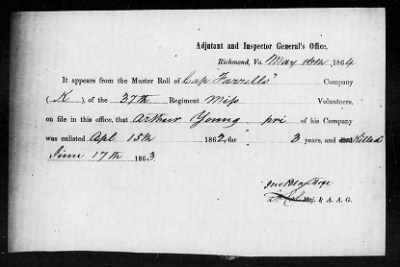 Adjutant and Inspector General's Office.
Richmond, Va. May 16th 1864
It appears from the Muster Roll of Cap Farrells' Company
(K), of the 37th Regiment Miss Volunteers,
on file in this office, that Arthur Young pri of his Company
was enlisted Apl 15th 1862, for 3 years, and was Killed
June 17th 1863
Maj. & A. A. G.